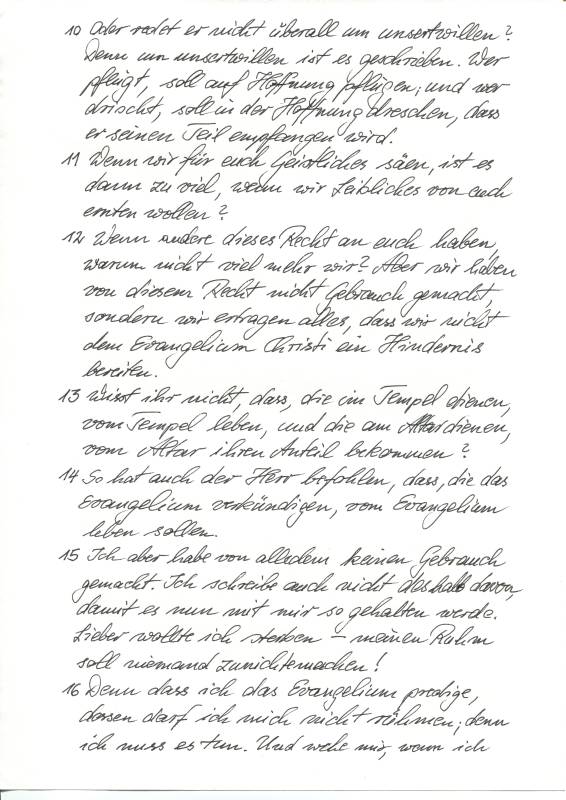 10 Oder redet er nicht überall um unsertwillen?
Denn um unsertwillen ist es geschrieben. Wer
pflügt, soll auf Hoffnung pflügen; und wer
drischt, soll in der Hoffnung dreschen, dass
er seinen Teil empfangen wird.
11 Wenn wir für euch Geistliches säen, ist es
dann zu viel, wenn wir Leibliches von euch
ernten wollen?
12 Wenn andere dieses Recht an euch haben,
warum nicht viel mehr wir? Aber wir haben
von diesem Recht nicht Gebrauch gemacht,
sondern wir ertragen alles, dass wir nicht
dem Evangelium Christi ein Hindernis
bereiten.
13 Wisst ihr nicht, dass, die im Tempel dienen,
vom Tempel leben, und die am Altar dienen,
vom Altar ihren Anteil bekommen?
14 So hat auch der Herr befohlen, dass, die das
Evangelium verkündigen, vom Evangelium
leben sollen.
15 Ich aber habe von alledem keinen Gebrauch
gemacht. Ich schreibe auch nicht deshalb davon,
damit es nun mit mir so gehalten werde.
Lieber wollte ich sterben – meinen Ruhm
soll niemand zunichtemachen!
16 Denn dass ich das Evangelium predige,
dessen darf ich mich nicht rühmen; denn
ich muss es tun. Und wehe mir, wenn ich